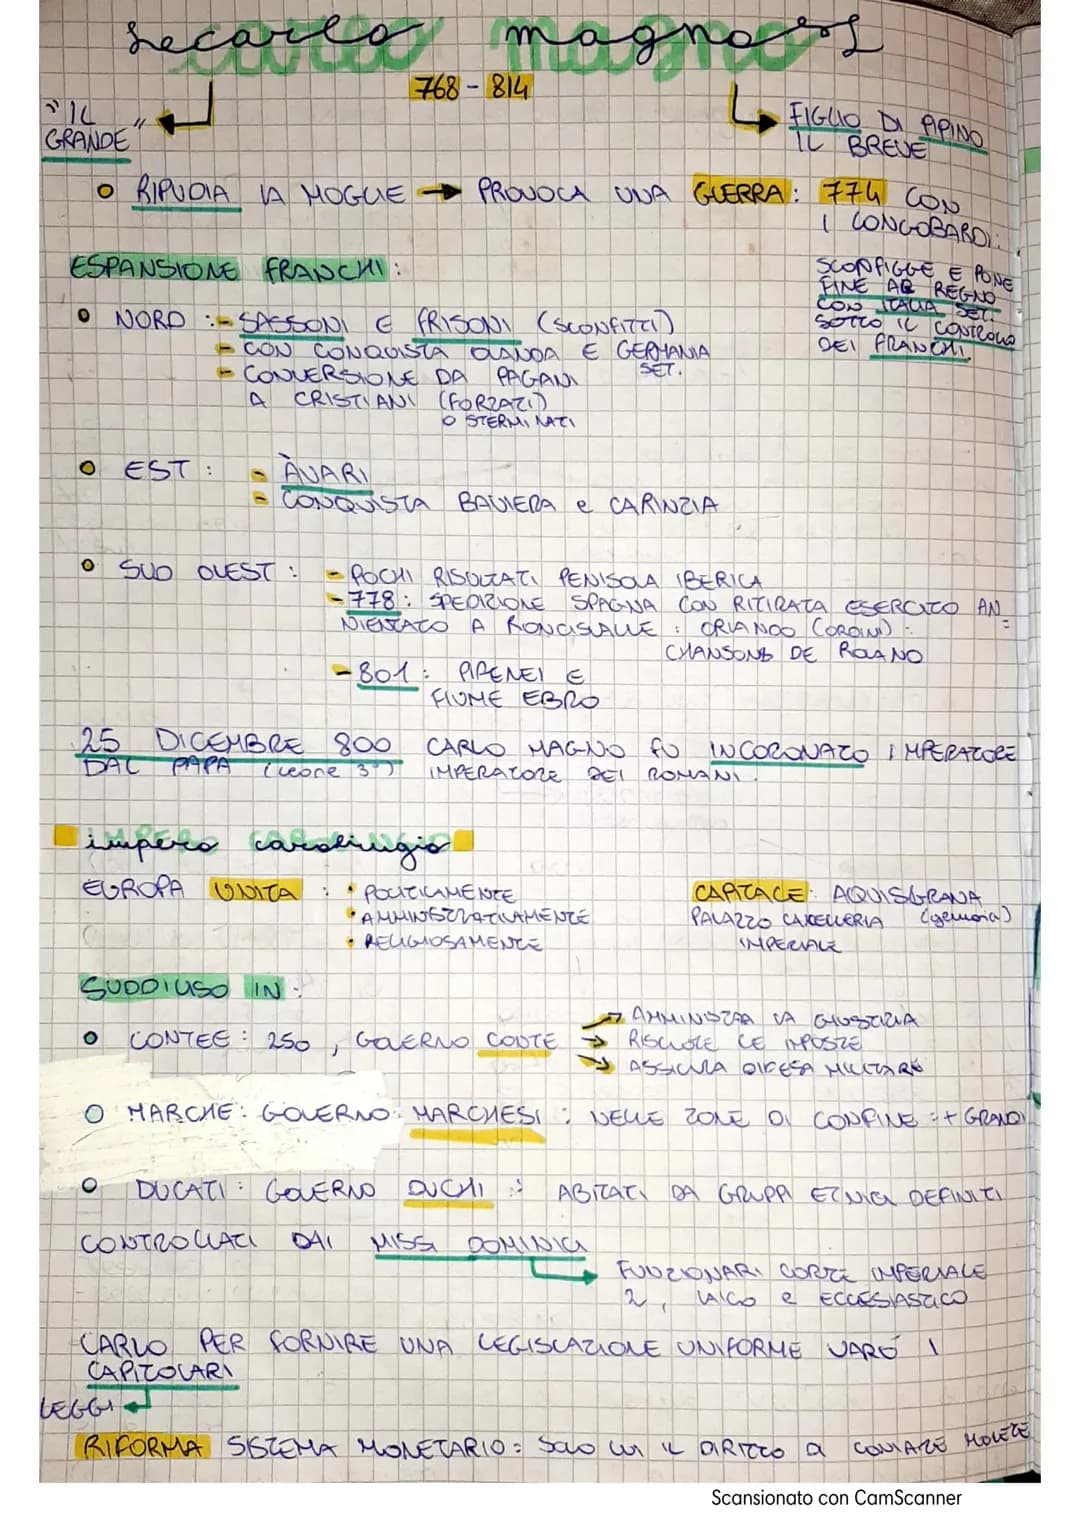 carlo magno
768 - 814
"IL GRANDE"
FIGLIO DI PIPINO
IL BREVE
RIPUDIA LA MOGLIE → PROVOCA UNA GUERRA: 774 CON
I LONGOBARDI:
SCONFIGGE E PONE
FINE AL REGNO
CON ITALIA SET.
SOTTO IL CONTROLLO
DEI FRANCHI
ESPANSIONE FRANCHI:
NORD: - SASSONI E FRISONI (SCONFITTI)
- CON CONQUISTA OLANDA E GERMANIA
SET.
- CONVERSIONE DA PAGANI
A CRISTIANI (FORZATI)
O STERMINATI
EST: - ÀVARI
- CONQUISTA BAVIERA e CARINZIA
SUD OVEST: - POCHI RISULTATI PENISOLA IBERICA
- 778: SPEDIZIONE SPAGNA CON RITIRATA ESERCITO AN=
NIENTATO A RONCISVALLE: ORLANDO
CHANSONS DE ROLAND
- 801: PIRENEI E
FIUME EBRO
25 DICEMBRE 800 CARLO MAGNO FU INCORONATO IMPERATORE
DAL PAPA (Leone 3°) IMPERATORE DEI ROMANI.
impero carolingio
EUROPA UNITA: • POLITICAMENTE
• AMMINISTRATIVAMENTE
• RELIGIOSAMENTE
CAPITALE: AQUISGRANA
PALAZZO CANCELLERIA (germania)
IMPERIALE
SUDDIVISO IN:
CONTEE: 250, GOVERNO CONTE → AMMINISTRA LA GIUSTIZIA
→ RISCUOTE LE IMPOSTE
→ ASSICURA DIFESA MILITARE
MARCHE: GOVERNO MARCHESI: NELLE ZONE DI CONFINE: + GRANDI
DUCATI: GOVERNO DUCHI: ABITATI DA GRUPPI ETNICI DEFINITI
CONTROLLATI DAI MISSI DOMINICI
→ FUNZIONARI CORTE IMPERIALE
2, LAICO e ECCLESIASTICO
CARLO PER FORNIRE UNA LEGISLAZIONE UNIFORME VARÒ I
CAPITOLARI
LEGGI
RIFORMA SISTEMA MONETARIO: Solo lui IL DIRITTO a CONIARE MONETE
Scansionato con CamScanner